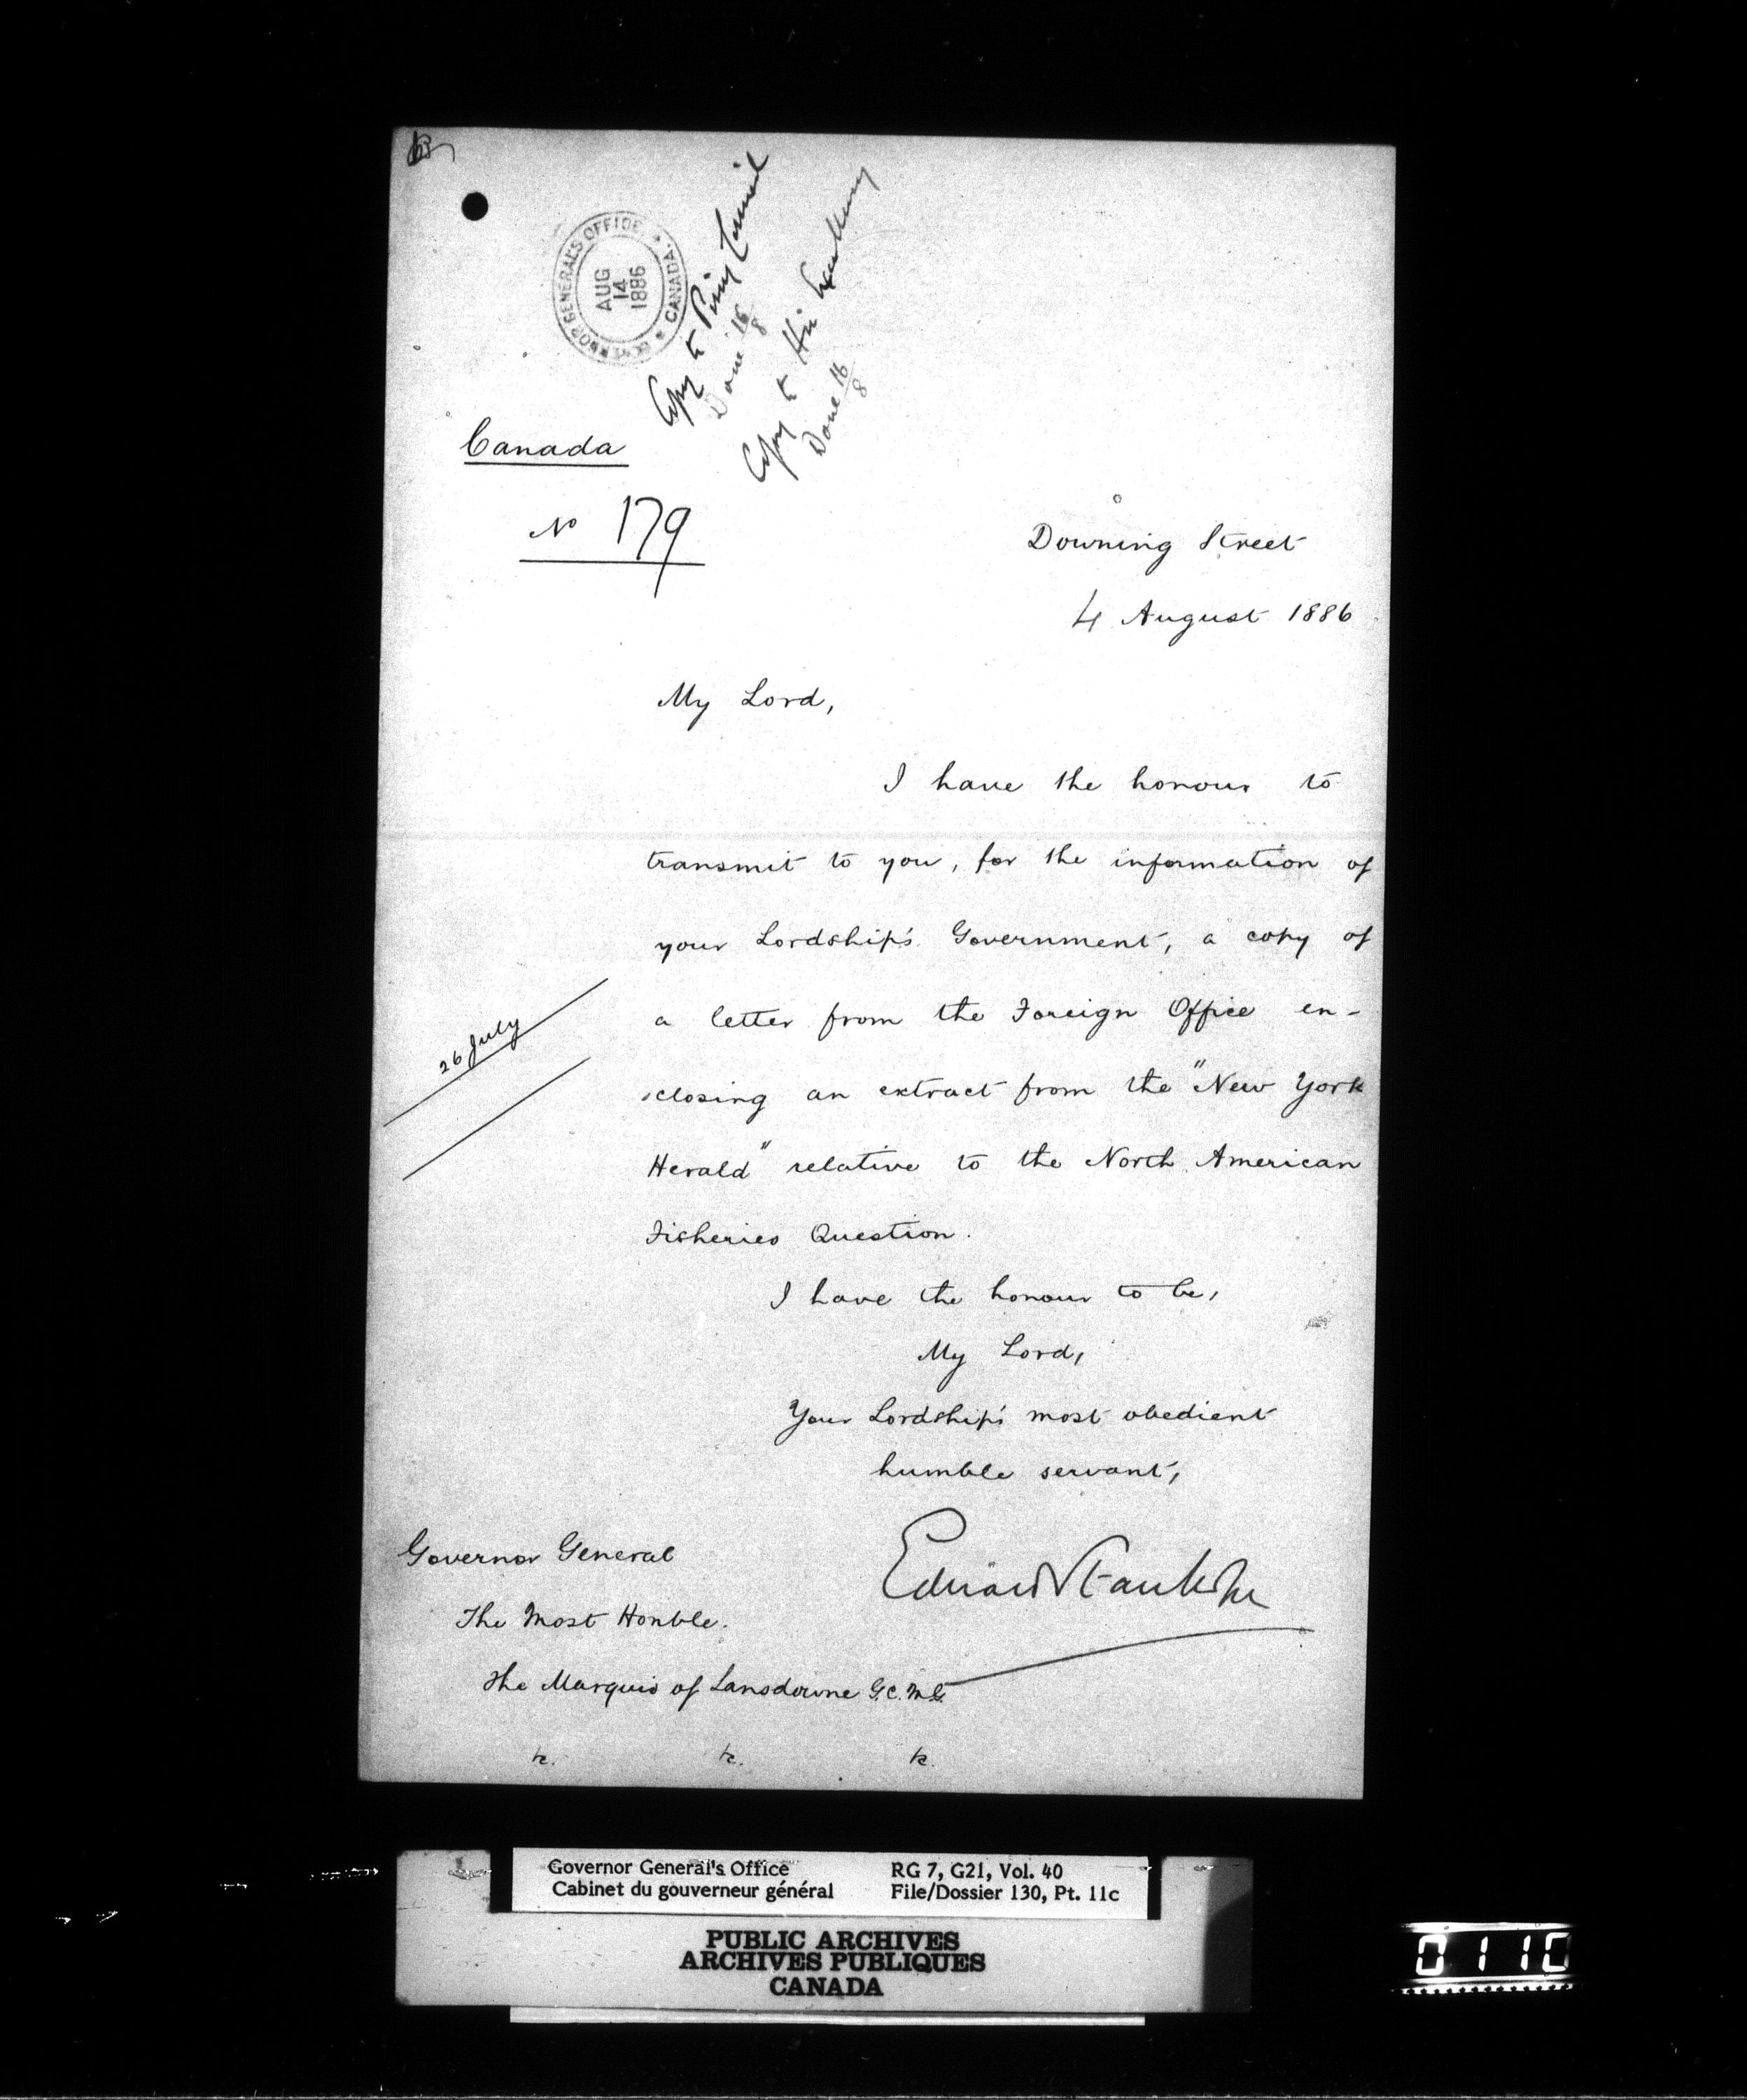 GOVERNOR GENERAL'S OFFICE
CANADA
AUG
14
1886
Copy to Privy Council
Done 16/8
Copy to His Excellency
Done 16/8
Canada
No 179
Downing Street
4 August 1886
My Lord,
I have the honour to
transmit to you, for the information of
your Lordship's Government, a copy of
a letter from the Foreign Office en-
closing an extract from the "New York
Herald" relative to the North American
Fisheries Question.
26 July
I have the honour to be,
My Lord,
Your Lordship's most obedient
humble servant,
Edward Stanhope
Governor General
The Most Honble.
The Marquis of Lansdowne G.C.M.G.
&c. &c. &c.
Governor General's Office RG 7, G21, Vol. 40
Cabinet du gouverneur général File/Dossier 130, Pt. 11c
PUBLIC ARCHIVES
ARCHIVES PUBLIQUES
CANADA
0110